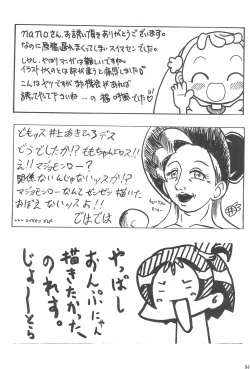 nanoさん、お誘い頂きありがとうございます。
なのに原稿遅れまくってしまいスイマセンでした。
しかし、やはりマンガは難しいですね。
イラストかくのとは訳が違うと痛感しました
こんなヤツですが又機会があれば
誘ってやって下さいね
どもッス井上あきひろデス
どうでしたか!?ももちゃんエロス!!
え!!マジョモンロー?
関係ないんじゃないッスか!?
マジョモンローなんてゼンゼン描いた
おぼえないッスよぉ!!
ではでは
やっぱし
おんぷにゃん
描きたかった
のれす。
じょーとら